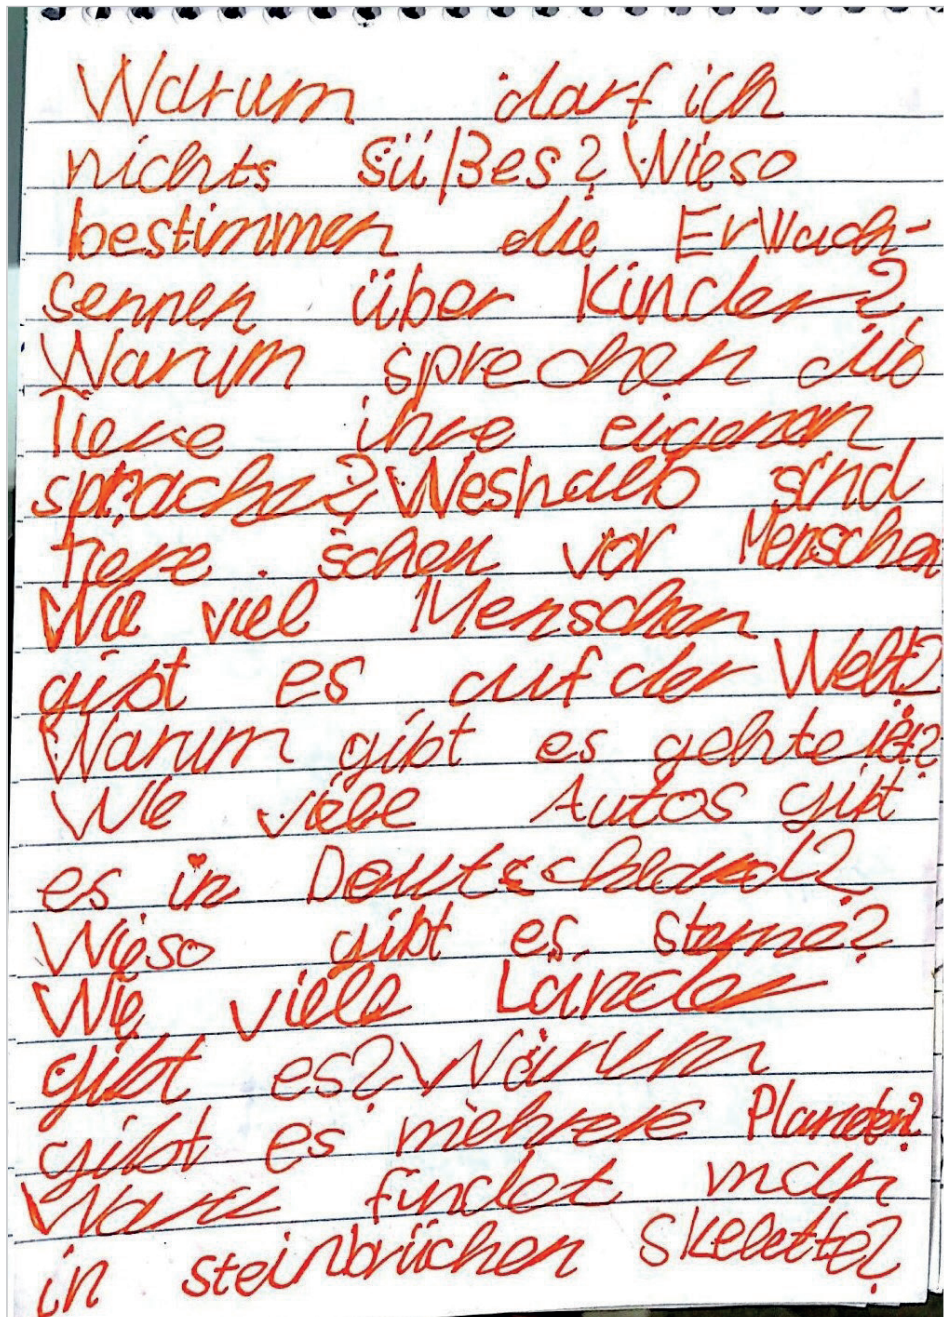 Warum darf ich
nichts süßes? Wieso
bestimmen die Erwach-
sennen über Kinder?
Warum sprechen die
tiere ihre eigenen
sprache? Weshalb sind
tiere scheu vor Menschen
Wie viel Menschen
gibt es auf der Welt?
Warum gibt es
Wie viele Autos gibt
es in Deutschland?
Wieso gibt es sterne?
Wie viele Länder
gibt es? Warum
gibt es mehrere Planeten?
findet man
in steinbrüchen Skelette?